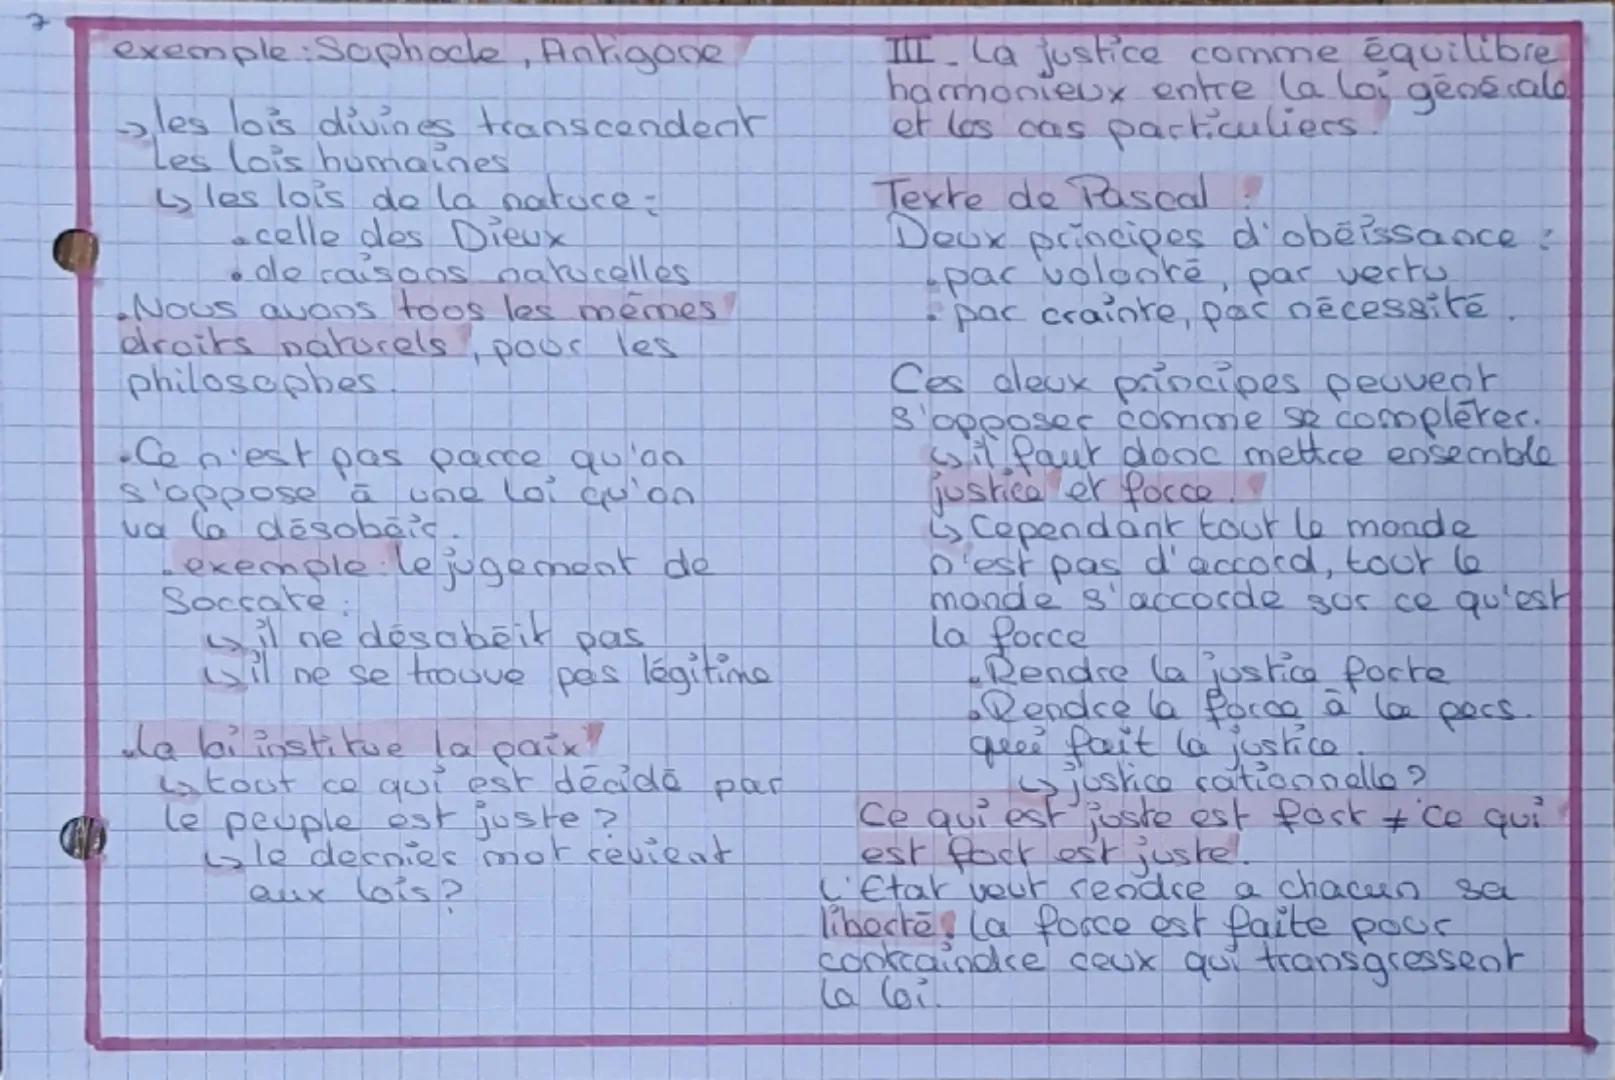 7
exemple : Sophocle, Antigone
→ les lois divines transcendent
les lois humaines
↳ les lois de la nature :
• celle des Dieux
• de raisons naturelles
• Nous avons tous les mêmes
droits naturels, pour les
philosophes.
• Ce n'est pas parce qu'on
s'oppose à une loi qu'on
va la désobéir.
• exemple : le jugement de
Socrate :
↳ il ne désobéit pas
↳ il ne se trouve pas légitime
• La loi institue la paix
↳ tout ce qui est décidé par
le peuple est juste ?
↳ le dernier mot revient
aux lois ?
III - La justice comme équilibre
harmonieux entre la loi générale
et les cas particuliers.
Texte de Pascal :
Deux principes d'obéissance :
• par volonté, par vertu
• par crainte, par nécessité.
Ces deux principes peuvent
s'opposer comme se compléter.
↳ il faut donc mettre ensemble
justice et force.
↳ Cependant tout le monde
n'est pas d'accord, tout le
monde s'accorde sur ce qu'est
la force
• Rendre la justice forte
• Rendre la force à la pers.
qui fait la justice.
↳ justice rationnelle ?
Ce qui est juste est fort ≠ ce qui
est fort est juste.
L'Etat veut rendre a chacun sa
liberté, la force est faite pour
contraindre ceux qui transgressent
la loi.